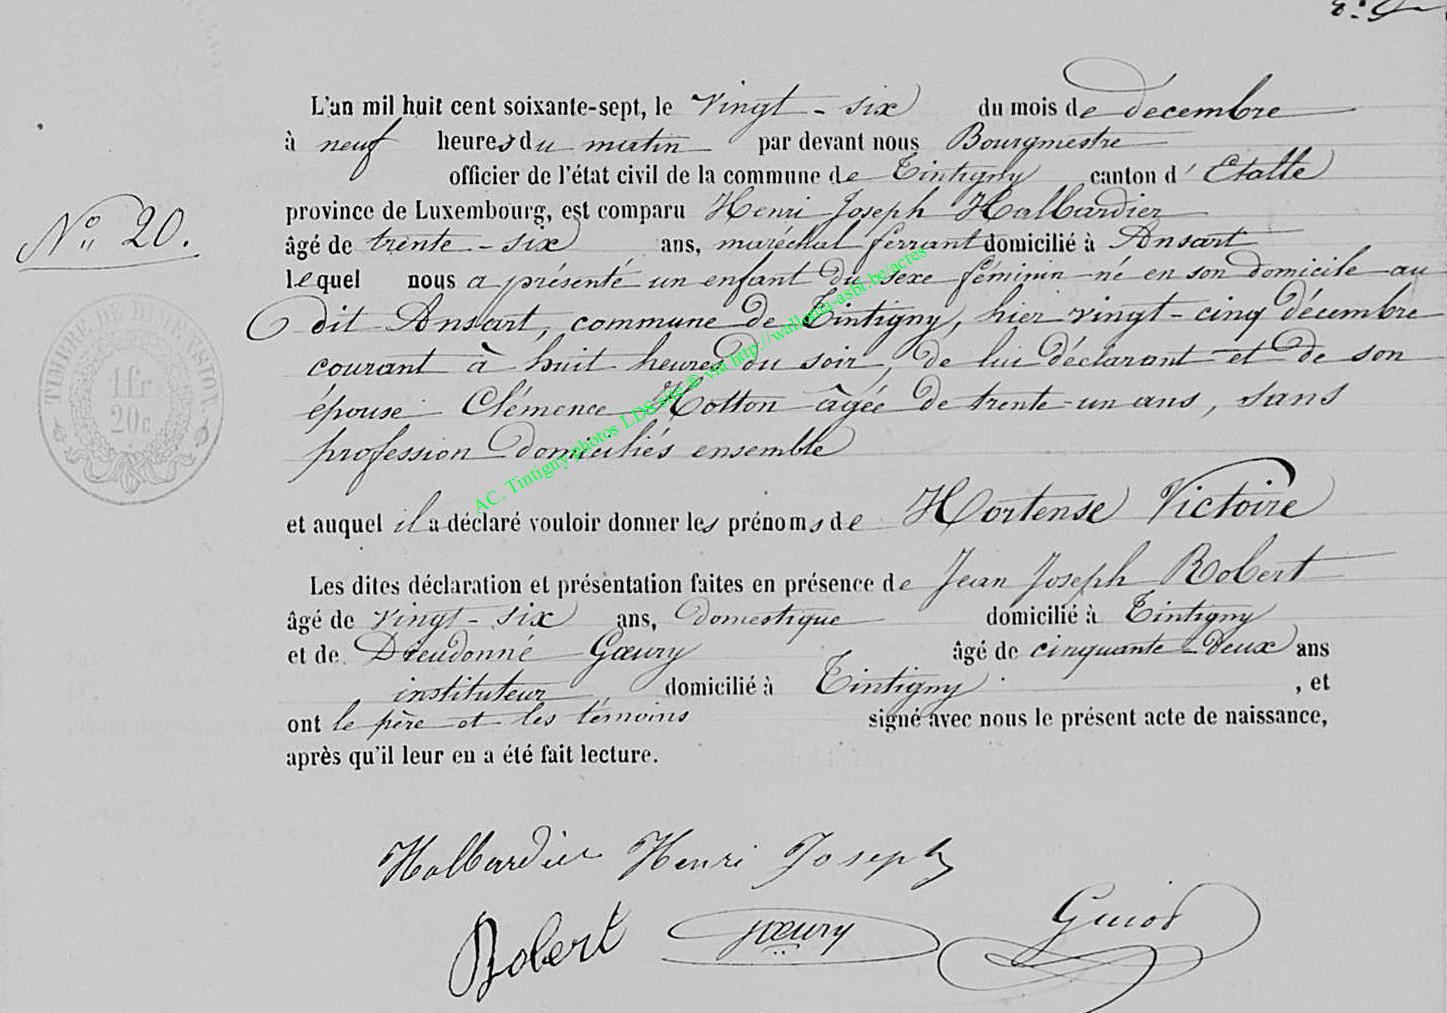 L'an mil huit cent soixante-sept, le vingt-six du mois de décembre
à neuf heures du matin par devant nous Bourgmestre
officier de l'état civil de la commune de Tintigny canton d'Etalle
province de Luxembourg, est comparu Henri Joseph Halbardier
N° 20.
âgé de trente-six ans, maréchal ferrant domicilié à Ansart
lequel nous a présenté un enfant du sexe féminin né en son domicile au
dit Ansart, commune de Tintigny, hier vingt-cinq décembre
courant à huit heures du soir, de lui déclarant et de son
épouse Clémence Hotton âgée de trente-un ans, sans
profession domiciliés ensemble
TIMBRE DE DIMENSION
1fr
20c
AC. Tintigny photos LDS site © via http://wallonia-asbl.be/actes
et auquel il a déclaré vouloir donner les prénoms de Hortense Victoire
Les dites déclaration et présentation faites en présence de Jean Joseph Robert
âgé de vingt-six ans, domestique domicilié à Tintigny
et de Dieudonné Gœury âgé de cinquante-deux ans
instituteur, domicilié à Tintigny , et
ont le père et les témoins signé avec nous le présent acte de naissance,
après qu'il leur en a été fait lecture.
Halbardier Henri Joseph
Robert Gœury Guiot